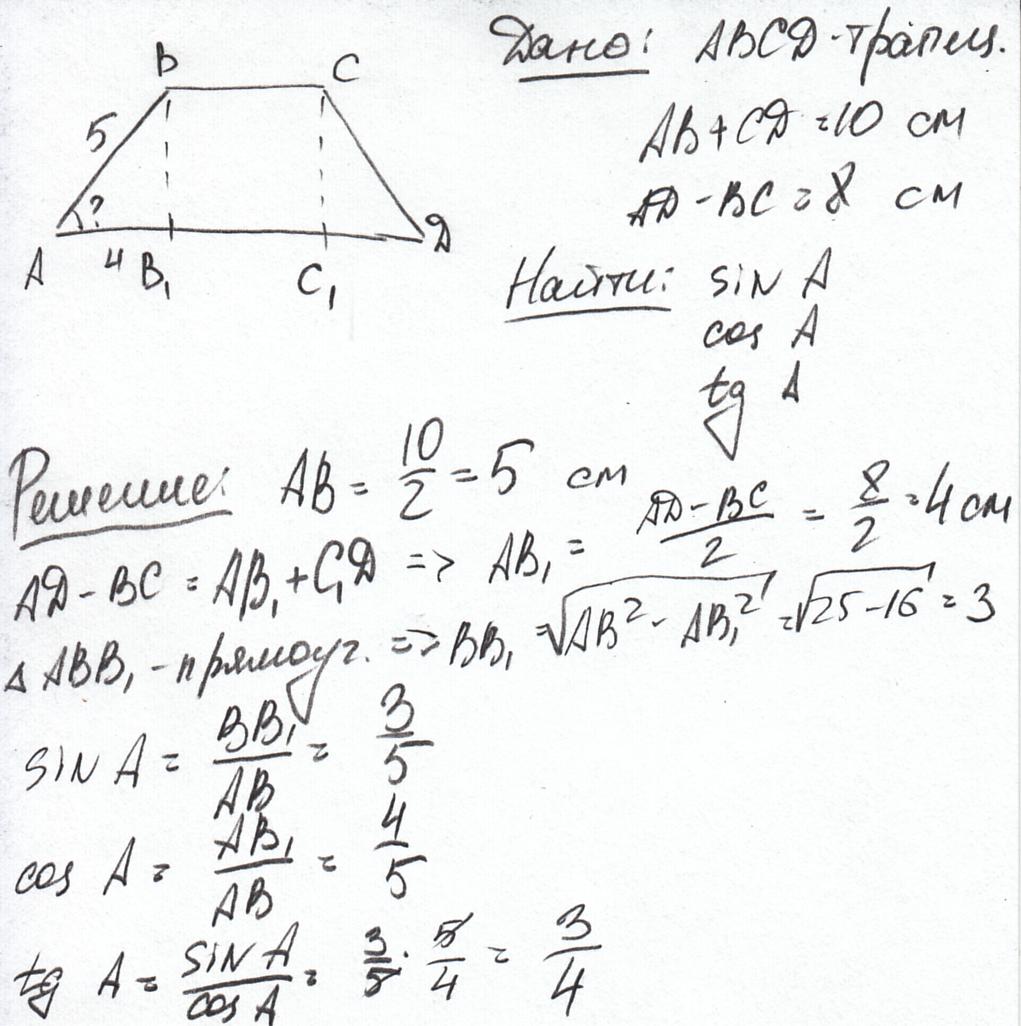 B C
5
?
A 4 B₁ C₁ D
Дано: ABCD-трапец.
AB+CD=10 см
AD-BC=8 см
Найти: sin A
cos A
tg A
Решение: AB = 10/2 = 5 см
AD-BC = AB₁+C₁D => AB₁ = (AD-BC)/2 = 8/2 = 4 см
△ABB₁-прямоуг. => BB₁ = √(AB²-AB₁²) = √(25-16) = 3
sin A = BB₁/AB = 3/5
cos A = AB₁/AB = 4/5
tg A = sin A/cos A = 3/5 · 5/4 = 3/4